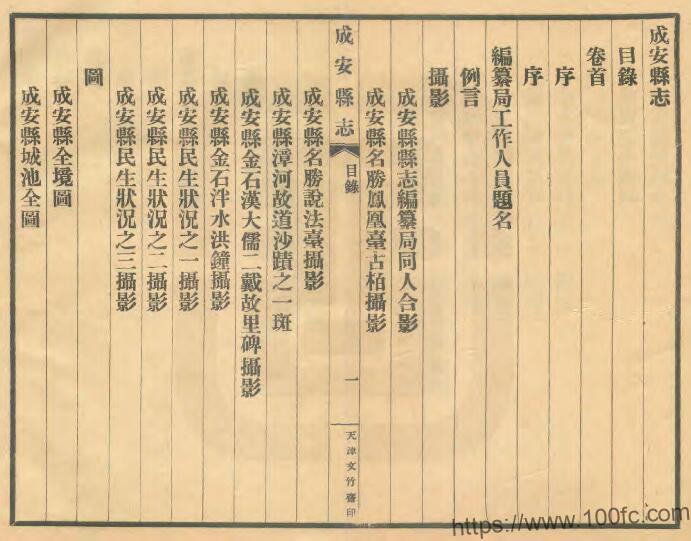 成安縣志
目錄
卷首
序
序
編纂局工作人員題名
例言
攝影
成安縣縣志編纂局同人合影
成安縣名勝鳳凰臺古柏攝影
成安縣志
目錄
一
天津文竹齋印
成安縣名勝說法臺攝影
成安縣漳河故道沙蹟之一斑
成安縣金石漢大儒二戴故里碑攝影
成安縣金石泮水洪鐘攝影
成安縣民生狀況之一攝影
成安縣民生狀況之二攝影
成安縣民生狀況之三攝影
圖
成安縣全境圖
成安縣城池全圖
https://www.100fc.com